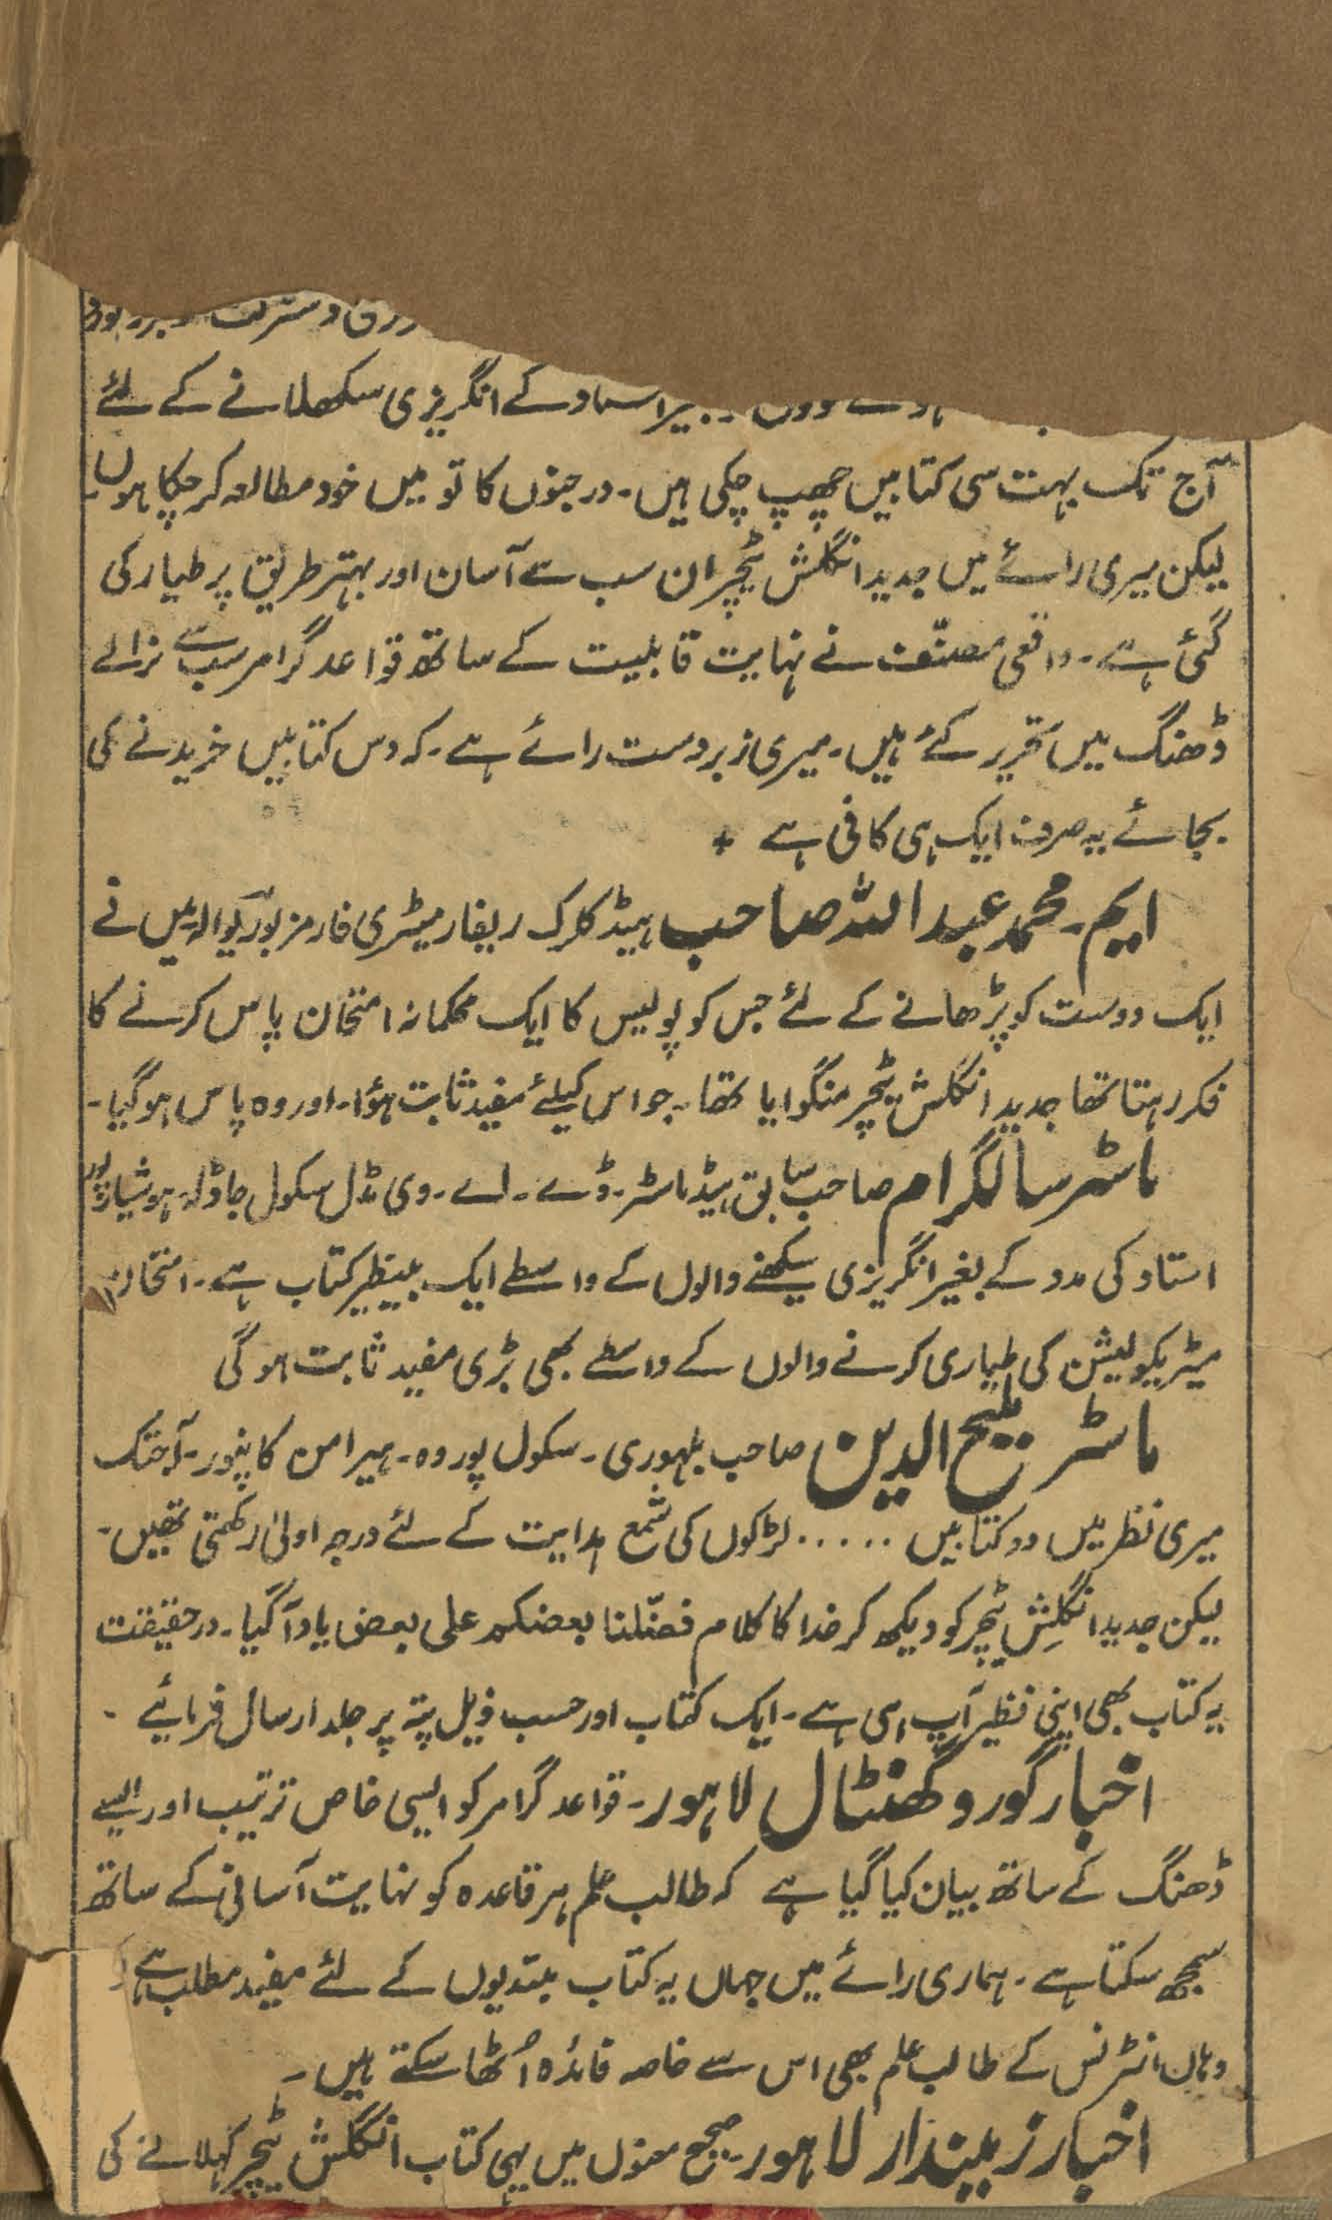 کے انگریزی سکھلانے کے لئے
آج تک بہت سی کتابیں چھپ چکی ہیں۔ درجنوں کا تو میں خود مطالعہ کر چکا ہوں۔
لیکن میری رائے میں جدید انگلش ٹیچر ان سب سے آسان اور بہتر طریق پر طیار کی
گئی ہے۔ واقعی مصنّف نے نہایت قابلیت کے ساتھ قواعد گرامر سب سے نرالے
ڈھنگ میں تحریر کئے ہیں۔ میری زبردست رائے ہے۔ کہ دس کتابیں خریدنے کی
بجائے یہ صرف ایک ہی کافی ہے +
ایم۔ محمد عبداللہ صاحب ہیڈ کلرک ریفارمیٹری فارمز بوریوالہ میں نے
ایک دوست کو پڑھانے کے لئے جس کو پولیس کا ایک محکمانہ امتحان پاس کرنے کا
فکر رہتا تھا جدید انگلش ٹیچر منگوایا تھا۔ جو اس کیلئے مفید ثابت ہؤا۔ اور وہ پاس ہو گیا۔
ماسٹر سالگرام صاحب سابق ہیڈ ماسٹر۔ ڈے۔ اے۔ وی مڈل سکول جاڈلہ ہوشیارپور
استاد کی مدد کے بغیر انگریزی سیکھنے والوں کے واسطے ایک بینظیر کتاب ہے۔ امتحان
میٹریکولیشن کی طیاری کرنے والوں کے واسطے بھی بڑی مفید ثابت ہو گی
ماسٹر الدین صاحب بلہوری۔ سکول پوروہ۔ میرامن کانپور۔ آجتک
میری نظر میں دو کتابیں ..... لڑکوں کی شمع ہدایت کے لئے درجہ اولیٰ رکھتی تھیں۔
لیکن جدید انگلِش ٹیچر کو دیکھ کر خدا کا کلام فضّلنا بعضکم علی بعض یاد آ گیا۔ درحقیقت
یہ کتاب بھی اپنی نظیر آپ ہی ہے۔ ایک کتاب اور حسب ذیل پتہ پر جلد ارسال فرمائیے ۔
اخبار گورو گھنٹال لاہور۔ قواعد گرامر کو ایسی خاص ترتیب اور ایسے
ڈھنگ کے ساتھ بیان کیا گیا ہے کہ طالب علم ہر قاعدہ کو نہایت آسانی کے ساتھ
سمجھ سکتا ہے۔ ہماری رائے میں جہاں یہ کتاب مبتدیوں کے لئے مفید مطلب ہے
وہاں انٹرنس کے طالب علم بھی اس سے خاصہ فائدہ اُٹھا سکتے ہیں۔
اخبار زمیندار لاہور۔ صحیح معنوں میں یہی کتاب انگلش ٹیچر کہلانے کی